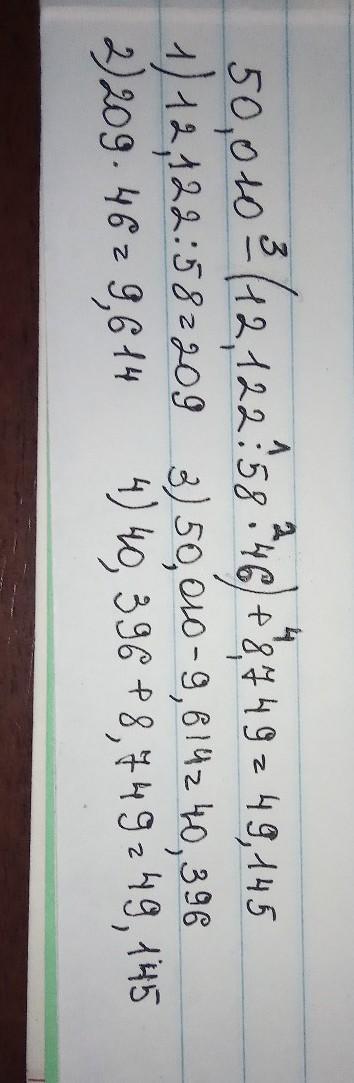 50,010 - (12,122 : 58 · 46) + 8,749 = 49,145
3 1 2 4
1) 12,122 : 58 = 209 3) 50,010 - 9,614 = 40,396
2) 209 · 46 = 9,614 4) 40,396 + 8,749 = 49,145